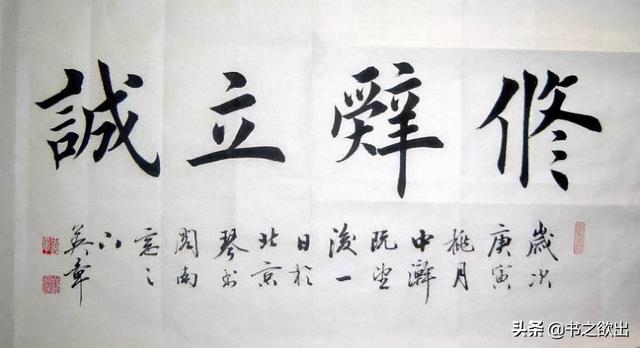 修辭立誠
歲次
庚寅
桃月
中澣
既望
後一
日於
北京
琴书
閣南
窓之
下
英章
头条 @书之欲出